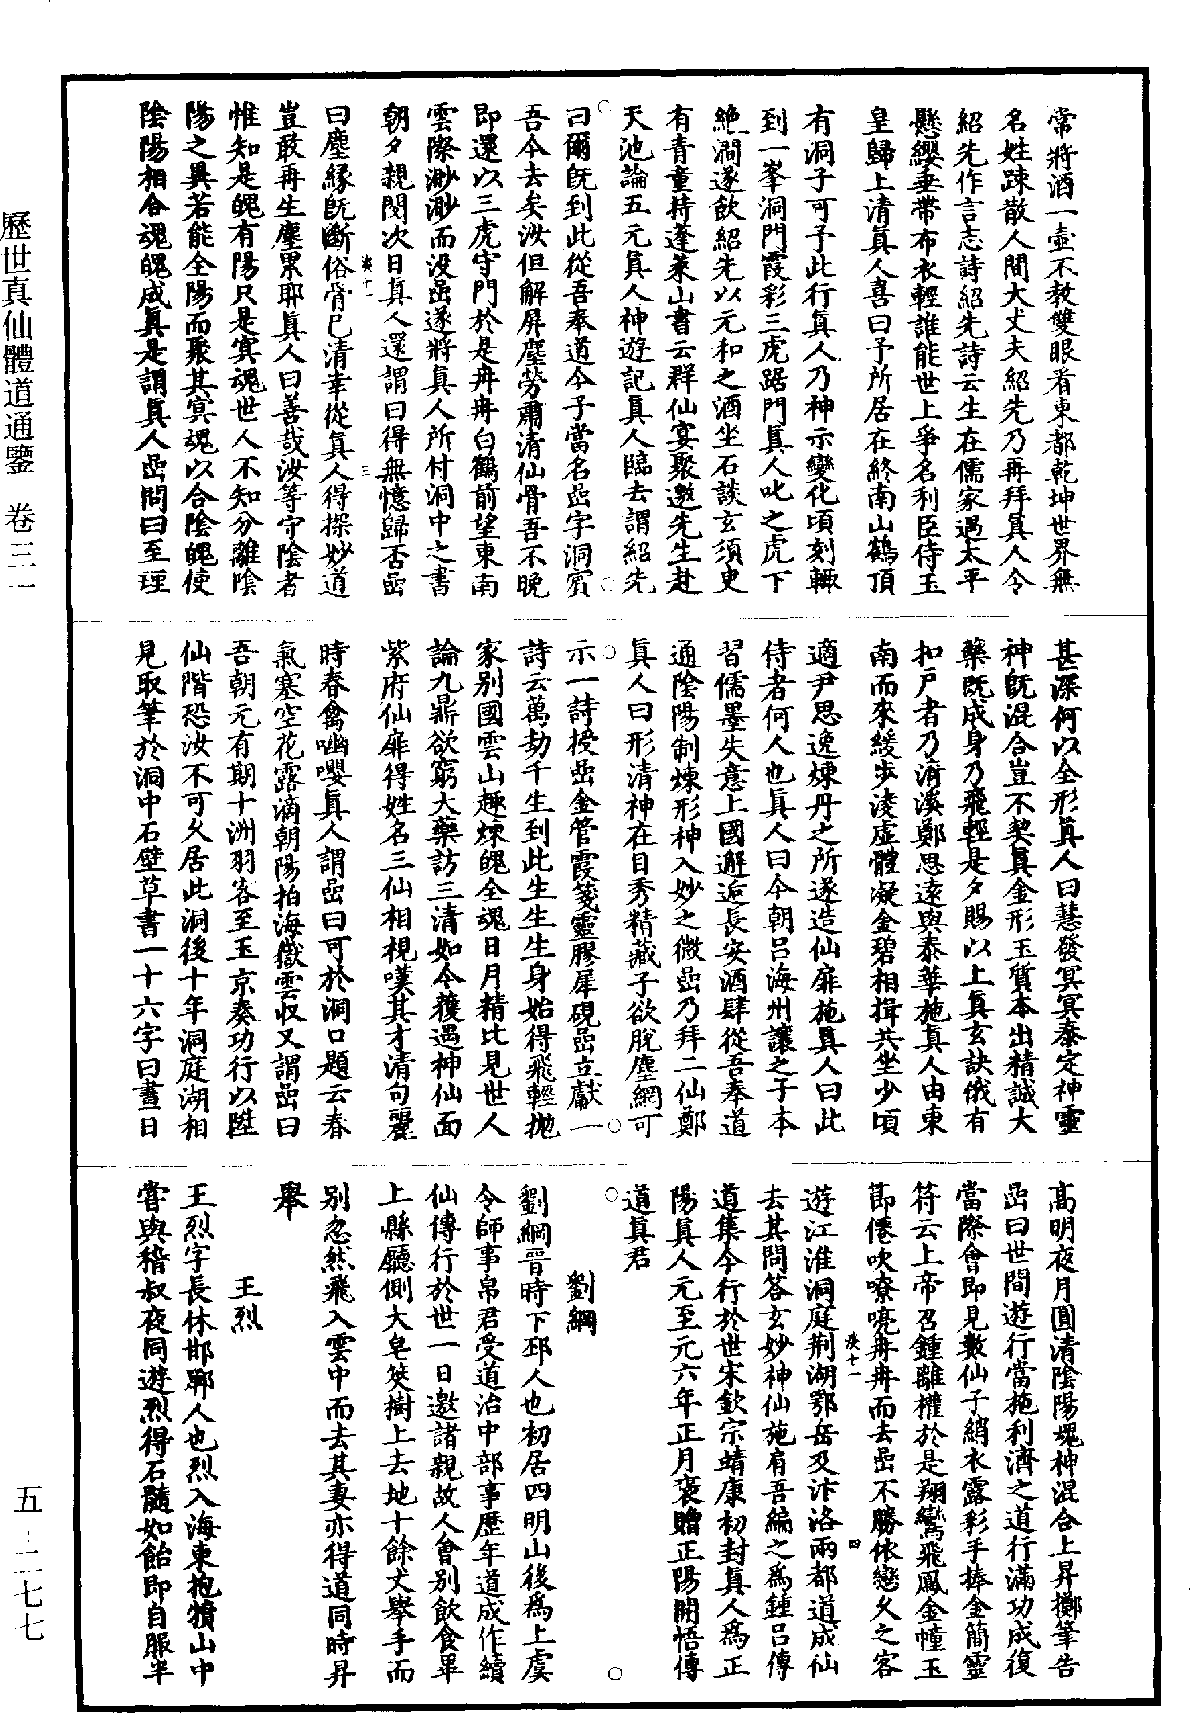 常將酒一壺不教雙眼看東都乾坤世界無
名姓踈散人間大丈夫紹先乃再拜眞人令
紹先作言志詩紹先詩云生在儒家遇太平
懸纓垂帶布衣輕誰能世上爭名利臣侍玉
皇歸上清眞人喜曰予所居在終南山鶴頂
有洞子可予此行眞人乃神示變化頃刻輙
到一峯洞門霞彩三虎踞門眞人叱之虎下
絶澗遂飲紹先以元和之酒坐石談玄須史
有青童持蓬萊山書云群仙宴聚邀先生赴
天池論五元眞人神遊記眞人臨去謂紹先
曰爾旣到此從吾奉道今子當名嵒字洞賓
吾今去矣汝但解屏塵勞肅清仙骨吾不晚
即還以三虎守門於是冉冉白鶴前望東南
雲際渺渺而没嵒遂將眞人所付洞中之書
朝夕親閱次日眞人還謂曰得無憶歸否嵒
三
曰塵緣旣斷俗骨已清幸從眞人得探妙道
豈敢再生塵累耶眞人曰善哉汝等守陰者
惟知是魄有陽只是冥魂世人不知分離陰
陽之異若能全陽而聚其冥魂以合陰魄使
陰陽相合魂魄成眞是謂眞人嵒問曰至理
甚深何以全形眞人曰慧發冥冥泰定神靈
神旣混合豈不契眞金形玉質本出精誠大
藥旣成身乃飛輕是夕賜以上眞玄訣俄有
扣戸者乃淯溪鄭思遠與泰華施眞人由東
南而來緩步淩虛體凝金碧相揖共坐少頃
適尹思逸煉丹之所遂造仙扉施眞人曰此
侍者何人也眞人曰今朝呂海州讓之子本
習儒墨失意上國邂逅長安酒肆從吾奉道
通陰陽制煉形神入妙之微嵒乃拜二仙鄭
眞人曰形清神在目秀精藏子欲脫塵網可
示一詩授嵒金管霞箋靈膠犀硯嵒立獻一
詩云萬劫千生到此生生生身始得飛輕抛
家別國雲山趣煉魄全魂日月精比見世人
論九鼎欲窮大藥訪三清如今獲遇神仙面
紫府仙扉得姓名三仙相視嘆其才清句麗
時春禽嚶嚶眞人謂嵒曰可於洞口題云春
氣塞空花露滴朝陽拍海嶽雲収又謂嵒曰
吾朝元有期十洲羽客至玉京奏功行以陞
仙階恐汝不可久居此洞後十年洞庭湖相
見取筆於洞中石壁草書一十六字曰晝日
高明夜月圓清陰陽塊神混合上昇擲筆告
嵒曰世間遊行當施利濟之道行滿功成復
當際會即見數仙子綃衣露彩手捧金簡靈
符云上帝召鍾離權於是翔鸞飛鳳金幢玉
節僊吹嘹喨冉冉而去嵒不勝依戀久之客
四
遊江淮洞庭荆湖鄂岳及汴洛兩都道成仙
去其問答玄妙神仙施有吾編之爲鍾呂傳
道集今行於世宋欽宗靖康初封眞人爲正
陽眞人元至元六年正月褒贈正陽開悟傳
道眞君
劉綱
劉綱晋時下邳人也初居四明山後爲上虞
令師事帛君受道治中部事歷年道成作續
仙傳行於世一日邀諸親故人會別飲食畢
上縣廳側大皂莢樹上去地十餘丈舉手而
別忽然飛入雲中而去其妻亦得道同時昇
舉
王烈
王烈字長休邯鄲人也烈入海東抱犢山中
嘗與稽叔夜同遊烈得石髓如飴即自服半
歷世真仙體道通鑒　卷三一
五–二七七